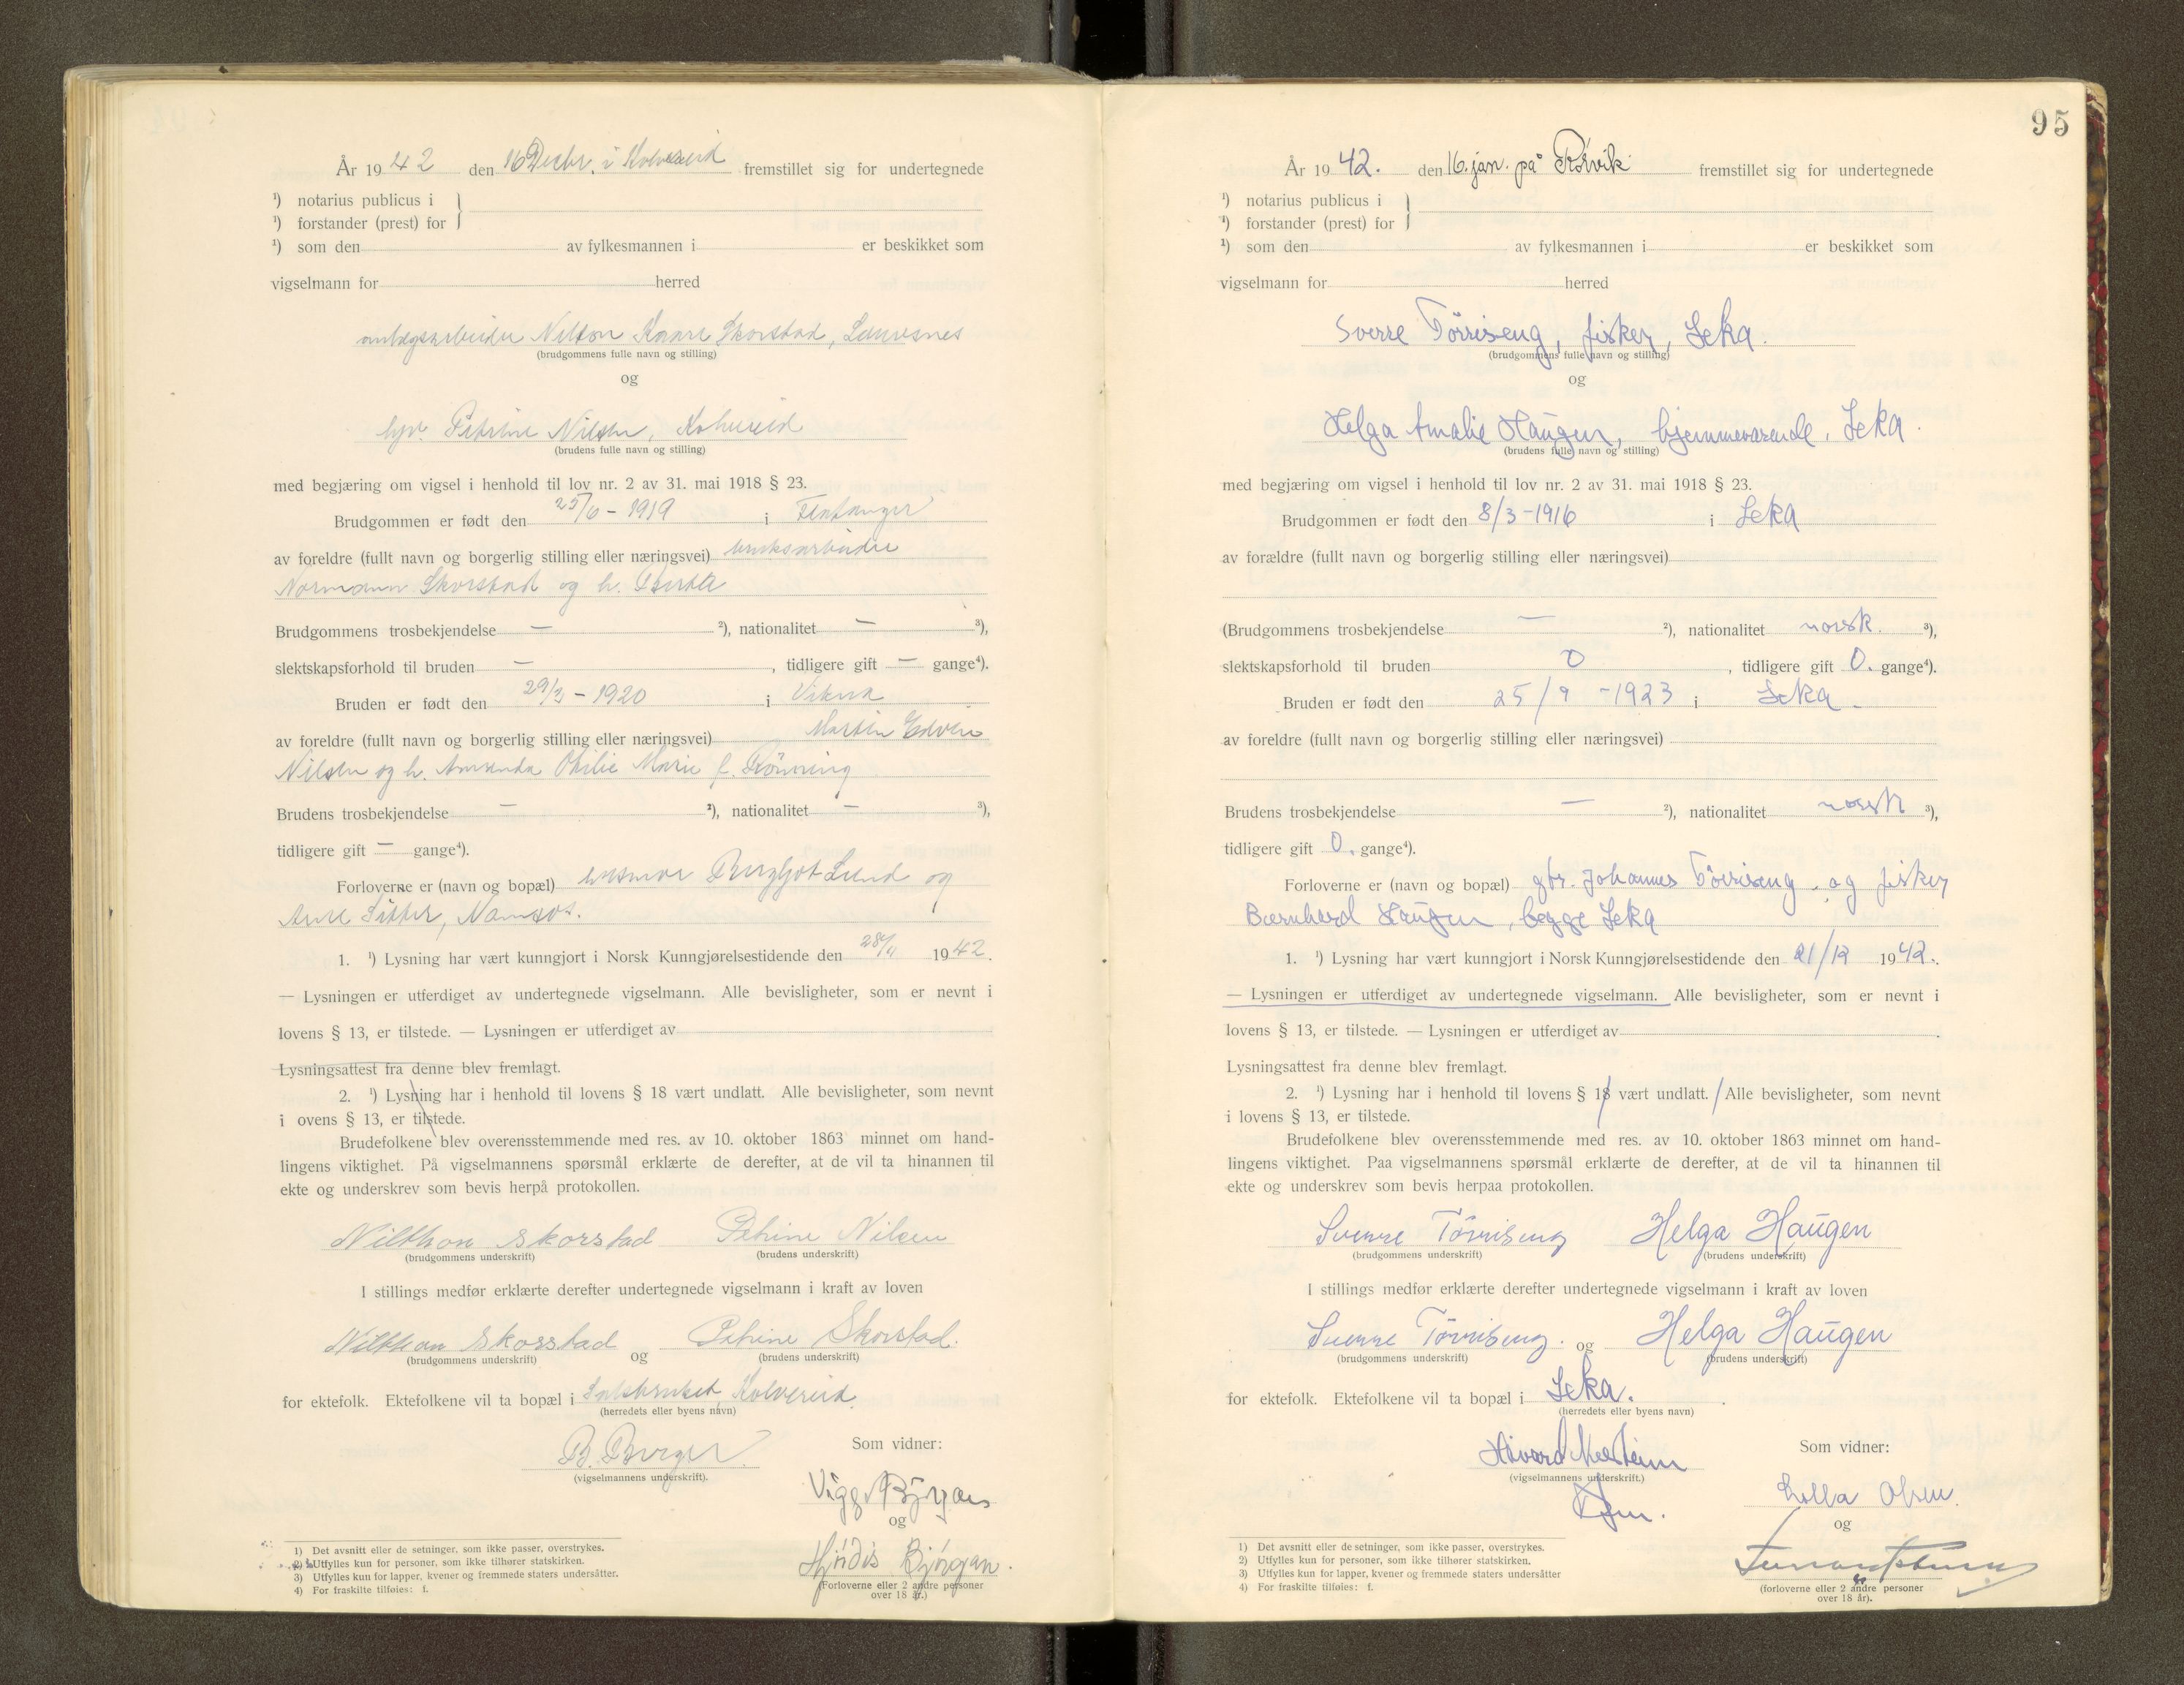 År 1942 den 16 Decbr. i Kolvereid fremstillet sig for undertegnede
¹) notarius publicus i
¹) forstander (prest) for
¹) som den av fylkesmannen i er beskikket som
vigselmann for herred
anlegsarbeider Nilton Kaare Skorstad,
(brudgommens fulle navn og stilling)
og
Petrine Nilsen, Kolvereid
(brudens fulle navn og stilling)
med begjæring om vigsel i henhold til lov nr. 2 av 31. mai 1918 § 23.
Brudgommen er født den 25/6 - 1919 i
av foreldre (fullt navn og borgerlig stilling eller næringsvei) bruksarbeider
Normann Skorstad og h.
Brudgommens trosbekjendelse — ²), nationalitet — ³),
slektskapsforhold til bruden —, tidligere gift — gange⁴).
Bruden er født den 29/3 - 1920 i Vikna
av foreldre (fullt navn og borgerlig stilling eller næringsvei) Martin Edvin
Nilsen og h. Amanda Otilie Marie f. Rönning
Brudens trosbekjendelse — ²), nationalitet — ³),
tidligere gift — gange⁴).
Forloverne er (navn og bopæl) Bergljot Lund og
Namsos.
1. ¹) Lysning har vært kunngjort i Norsk Kunngjørelsestidende den 28/11 1942.
— Lysningen er utferdiget av undertegnede vigselmann. Alle bevisligheter, som er nevnt i
lovens § 13, er tilstede. — Lysningen er utferdiget av
Lysningsattest fra denne blev fremlagt.
2. ¹) Lysning har i henhold til lovens § 18 vært undlatt. Alle bevisligheter, som nevnt
i ovens § 13, er tilstede.
Brudefolkene blev overensstemmende med res. av 10. oktober 1863 minnet om hand-
lingens viktighet. På vigselmannens spørsmål erklærte de derefter, at de vil ta hinannen til
ekte og underskrev som bevis herpå protokollen.
Nilthon Skorstad Petrine Nilsen
(brudgommens underskrift) (brudens underskrift)
I stillings medfør erklærte derefter undertegnede vigselmann i kraft av loven
Nilthon Skorstad og Petrine Skorstad.
(brudgommens underskrift) (brudens underskrift)
for ektefolk. Ektefolkene vil ta bopæl i Kolvereid
(herredets eller byens navn)
B. Berger
(vigselmannens underskrift).
Som vidner:
Viggo Björgan
og
Hjördis Björgan.
(Forloverne eller 2 andre personer
over 18 år.)
1) Det avsnitt eller de setninger, som ikke passer, overstrykes.
2) Utfylles kun for personer, som ikke tilhører statskirken.
3) Utfylles kun for lapper, kvener og fremmede staters undersåtter.
4) For fraskilte tilføies: f.
95
År 1942. den 16. jan. på Rörvik fremstillet sig for undertegnede
¹) notarius publicus i
¹) forstander (prest) for
¹) som den av fylkesmannen i er beskikket som
vigselmann for herred
Sverre Törriseng, fisker, Leka.
(brudgommens fulle navn og stilling)
og
Helga Amalie Haugen, hjemmeværende, Leka.
(brudens fulle navn og stilling)
med begjæring om vigsel i henhold til lov nr. 2 av 31. mai 1918 § 23.
Brudgommen er født den 8/3 - 1916 i Leka
av forældre (fullt navn og borgerlig stilling eller næringsvei)
(Brudgommens trosbekjendelse — ²), nationalitet norsk. ³),
slektskapsforhold til bruden 0, tidligere gift 0. gange⁴).
Bruden er født den 25/9 - 1923 i Leka.
av foreldre (fullt navn og borgerlig stilling eller næringsvei)
Brudens trosbekjendelse — ²), nationalitet norsk ³),
tidligere gift 0. gange⁴).
Forloverne er (navn og bopæl) gbr. Johannes Törriseng, og fisker
Bernhard Haugen, begge Leka
1. ¹) Lysning har vært kunngjort i Norsk Kunngjørelsestidende den 21/12 1942.
— Lysningen er utferdiget av undertegnede vigselmann. Alle bevisligheter, som er nevnt i
lovens § 13, er tilstede. — Lysningen er utferdiget av
Lysningsattest fra denne blev fremlagt.
2. ¹) Lysning har i henhold til lovens § 18 vært undlatt. Alle bevisligheter, som nevnt
i lovens § 13, er tilstede.
Brudefolkene blev overensstemmende med res. av 10. oktober 1863 minnet om hand-
lingens viktighet. Paa vigselmannens spørsmål erklærte de derefter, at de vil ta hinannen til
ekte og underskrev som bevis herpaa protokollen.
Sverre Törriseng Helga Haugen
(brudgommens underskrift) (brudens underskrift)
I stillings medfør erklærte derefter undertegnede vigselmann i kraft av loven
Sverre Törriseng. og Helga Haugen
(brudgommens underskrift) (brudens underskrift)
for ektefolk. Ektefolkene vil ta bopæl i Leka.
(herredets eller byens navn)
(vigselmannens underskrift.)
Som vidner:
Olsen.
og
(forloverne eller 2 andre personer
over 18 år).
1) Det avsnitt eller de setninger, som ikke passer, overstrykes.
2) Utfylles kun for personer, som ikke tilhører statskirken.
3) Utfylles kun for lapper, kvener og fremmede staters undersåtter
4) For fraskilte tilføies: f.